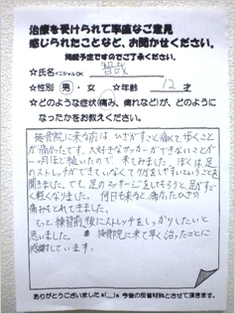 治療を受けられて率直なご意見
感じられたことなど、お聞かせください。
掲載予定ですのでご了承ください。
☆氏名イニシャルOK 智哉
☆性別 男・女 ☆年齢 12才
☆どのような症状(痛み、痺れなど)が、どのように
なったかをお教えください。
接骨院に来る前は、ひざがすごく痛くて歩くこと
が痛かったです。大好きなサッカーができないことが
一ヶ月ほど続いたので、来てみました。ぼくは足
のストレッチができていなくてケガをしやすいということを
聞きました。でも、足のマッサージをしてもらうと足がすご
く軽くなりました。何日も来ると痛かったひざの
痛みもとれてきました。
もっと練習前、後にストレッチをしっかりしたいと
思いました。接骨院に来て早く治ったことに
感謝しています。
ありがとうございました m(__)m 今後の反省材料とさせて頂きます。